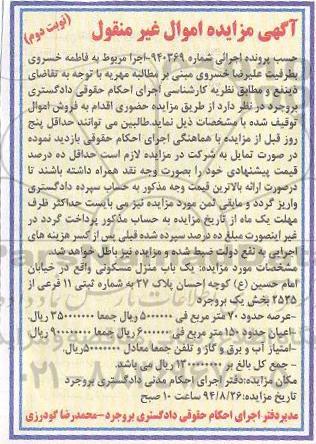 آگهی مزایده اموال غیر منقول
(نوبت دوم)
حسب پرونده اجرائی شماره ۹۴۰۳۶۹-اجرا مربوط به فاطمه خسروی
بطرفیت علیرضا خسروی مبنی بر مطالبه مهریه با توجه به تقاضای
ذینفع و مطابق نظریه کارشناسی اجرای احکام حقوقی دادگستری
بروجرد در نظر دارد از طریق مزایده حضوری اقدام به فروش اموال
توقیف شده با مشخصات ذیل نماید.طالبین می توانند حداقل پنج
روز قبل از مزایده با هماهنگی اجرای احکام حقوقی بازدید نموده
در صورت تمایل به شرکت در مزایده لازم است حداقل ده درصد
قیمت پیشنهادی خود را بصورت وجه نقد همراه داشته باشند تا
درصورت ارائه بالاترین قیمت وجه مذکور به حساب سپرده دادگستری
واریز گردد و مابقی ثمن مورد مزایده نیز می بایست حداکثر ظرف
مهلت یک ماه از تاریخ مزایده به حساب مذکور پرداخت گردد در
غیر اینصورت مبلغ ده درصد سپرده شده قبلی پس از کسر هزینه های
اجرای به نفع دولت ضبط شده و مزایده نیز باطل خواهد شد.
مشخصات مورد مزایده: یک باب منزل مسکونی واقع در خیابان
امام حسین (ع) کوچه احسان پلاک ۲۷ به شماره ثبتی ۱۱ فرعی از
۲۵۳۵ بخش یک بروجرد
-عرصه حدود ۷۰ متر مربع فی ۵۰۰۰۰۰۰ ریال جمعا ۳۵۰۰۰۰۰۰۰ ریال
-اعیان حدود ۱۵۰ متر مربع فی ۶۰۰۰۰۰۰ ریال جمعا ۹۰۰۰۰۰۰۰۰ ریال
-امتیاز آب و برق و گاز و تلفن جمعا معادل ۵۰۰۰۰۰۰۰ ریال.
- جمع کل بالغ بر ۱۳۰۰۰۰۰۰۰۰ ریال می باشد.
مکان مزایده:دفتر اجرای احکام مدنی دادگستری بروجرد
تاریخ مزایده:۹۴/۸/۲۶ ساعت ۱۰ صبح
مدیردفتر اجرای احکام حقوقی دادگستری بروجرد-محمدرضا گودرزی